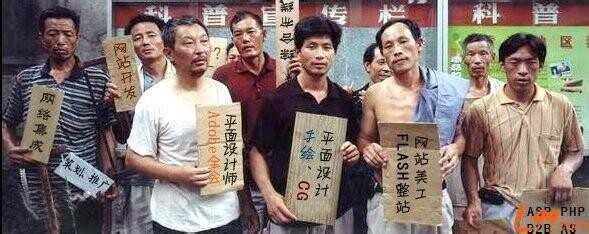 科普宣传栏
科普
网络集成
网站开发
策划.推广
?
平面设计师
Adobe全套
平面设计
手绘、CG
网站美工
FLASH整站
ASP PHP
D2B AS